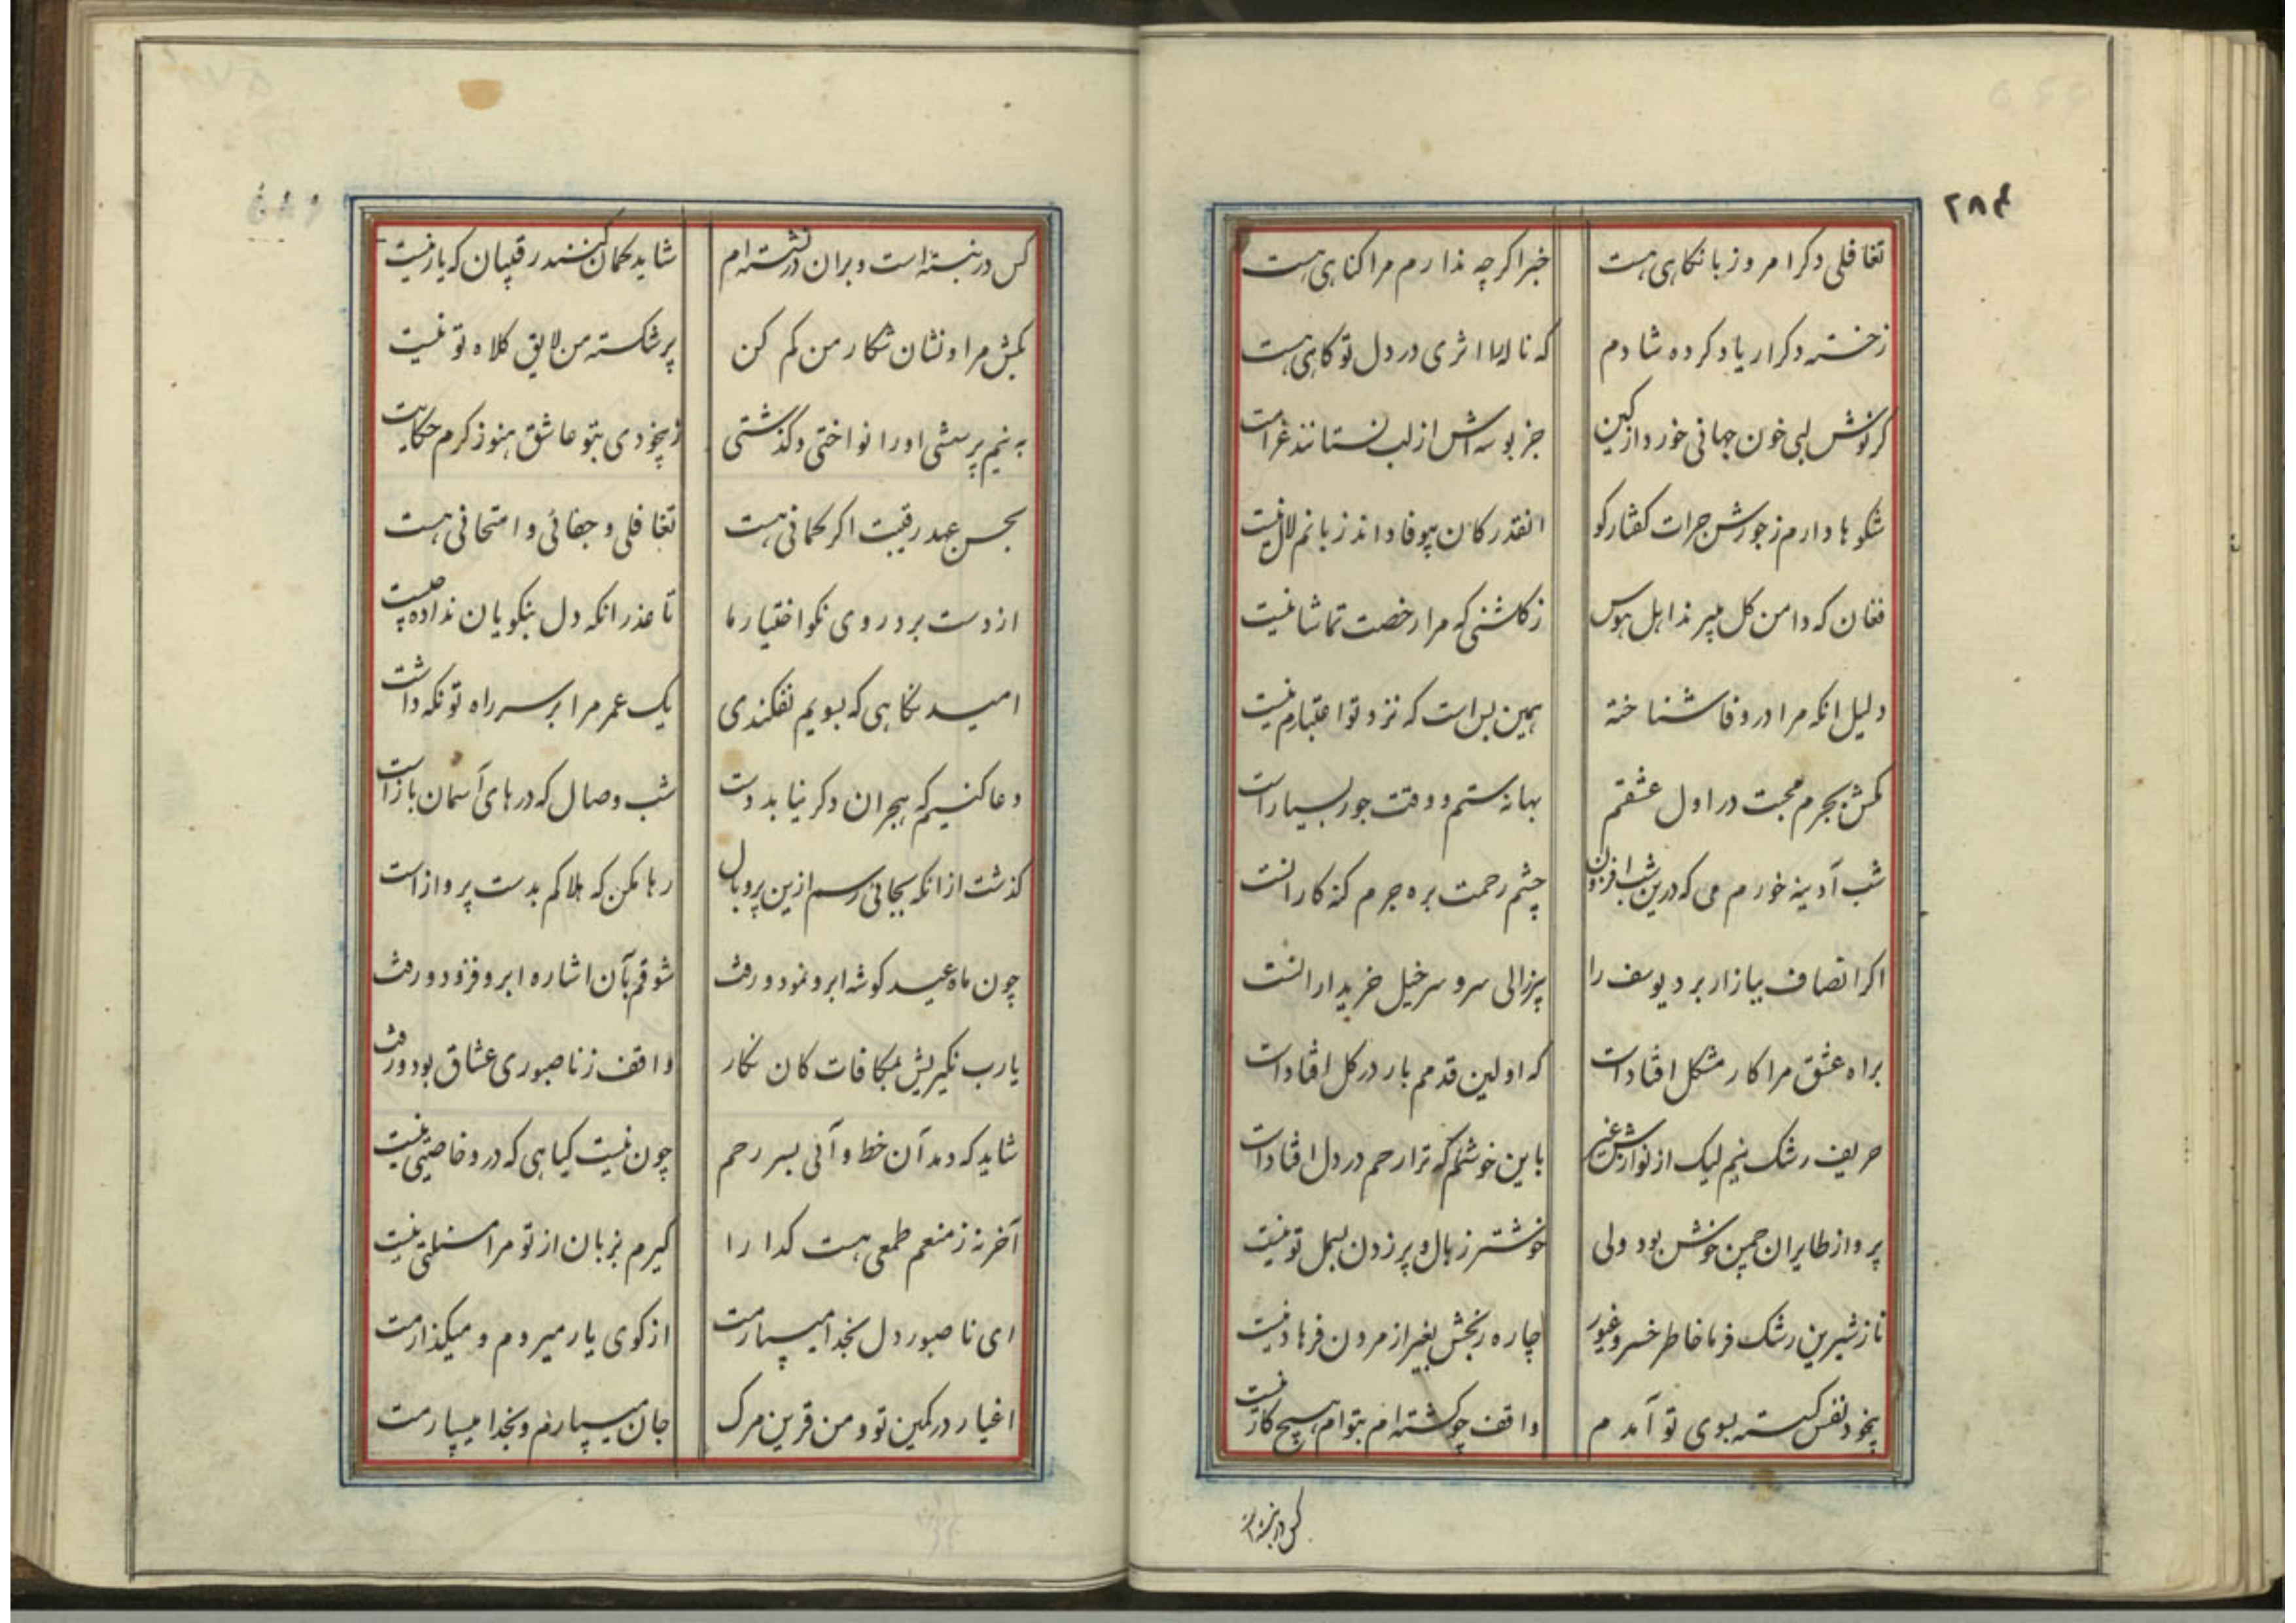 ۲۸۴
تغافلی دکر امروز با نکاهی هست
خبر اکرچه ندارم مرا کناهی هست
ز خسته دکرار یاد کرده شادم
که ناله‌ام اثری در دل تو کاهی هست
کر نوش لبی خون جهانی خورد از کین
جز بوسه اش از لب نستانند غرامت
شکوها دارم ز جورش جرات کفتار کو
انقدر کان بیوفا داند زبانم لال نیست
فغان که دامن کل میبرند اهل هوس
ز کلشنی که مرا رخصت تماشا نیست
دلیل انکه مرا در وفا شناخته
همین بس است که نزد تو اعتبارم نیست
مکش بجرم محبت در اول عشقم
بهانه ستم و وقت جور بسیار است
شب آدینه خورم می که درین شب افزون
چشم رحمت بره جرم کنه کارانست
اکر انصاف ببازار برد یوسف را
پیرزالی سر و سرخیل خریدارانست
براه عشق مرا کار مشکل افتادست
که اولین قدمم بار در کل افتادست
حریف رشک نیم لیک از نوازش غیر
باین خوشم که ترا رحم در دل افتادست
پرواز طایران چمن خوش بود ولی
خوشتر ز بال و پر زدن بسمل تو نیست
ناز شیرین رشک فرما خاطر خسرو غیور
چاره رنجش بغیر از مردن فرهاد نیست
بیخود نفس کسسته بسوی تو آمدم
واقف چو کشته ام بتوام هیچ کار نیست
کس در نبسته است
کس در نبسته است و بران در نشسته ام
شاید کمان کنند رقیبان که یار نیست
بکش مرا و نشان شکار من کم کن
پر شکسته من لایق کلاه تو نیست
به نیم پرسشی او را نواختی و کذشتی
ز بیخودی بتو عاشق هنوز کرم حکایت
بحسن عهد رقیبت اکر کمانی هست
تغافلی و جفائی و امتحانی هست
از دست برد روی نکو اختیار ما
تا عذر انکه دل بنکویان نداده چیست
امید نکاهی که بسویم نفکندی
یک عمر مرا بر سر راه تو نکه داشت
دعا کنیم که هجران دکر نیابد دست
شب وصال که درهای آسمان بازست
کذشت از انکه بجائی رسم ازین پر و بال
رها مکن که هلاکم بدست پرواز است
چون ماه عید کوشه ابرو نمود و رفت
شوقم بآن اشاره ابرو فزود و رفت
یارب نکیریش بمکافات کان نکار
واقف ز ناصبوری عشاق بود و رفت
شاید که دمد آن خط و آئی بسر رحم
چون نیست کیاهی که درو خاصیتی نیست
آخر نه ز منعم طمعی هست کدا را
کیرم بزبان از تو مرا مسئلتی نیست
ای ناصبور دل بخدا میسپارمت
از کوی یار میروم و میکذارمت
اغیار در کمین تو و من قرین مرک
جان میسپارم و بخدا میسپارمت